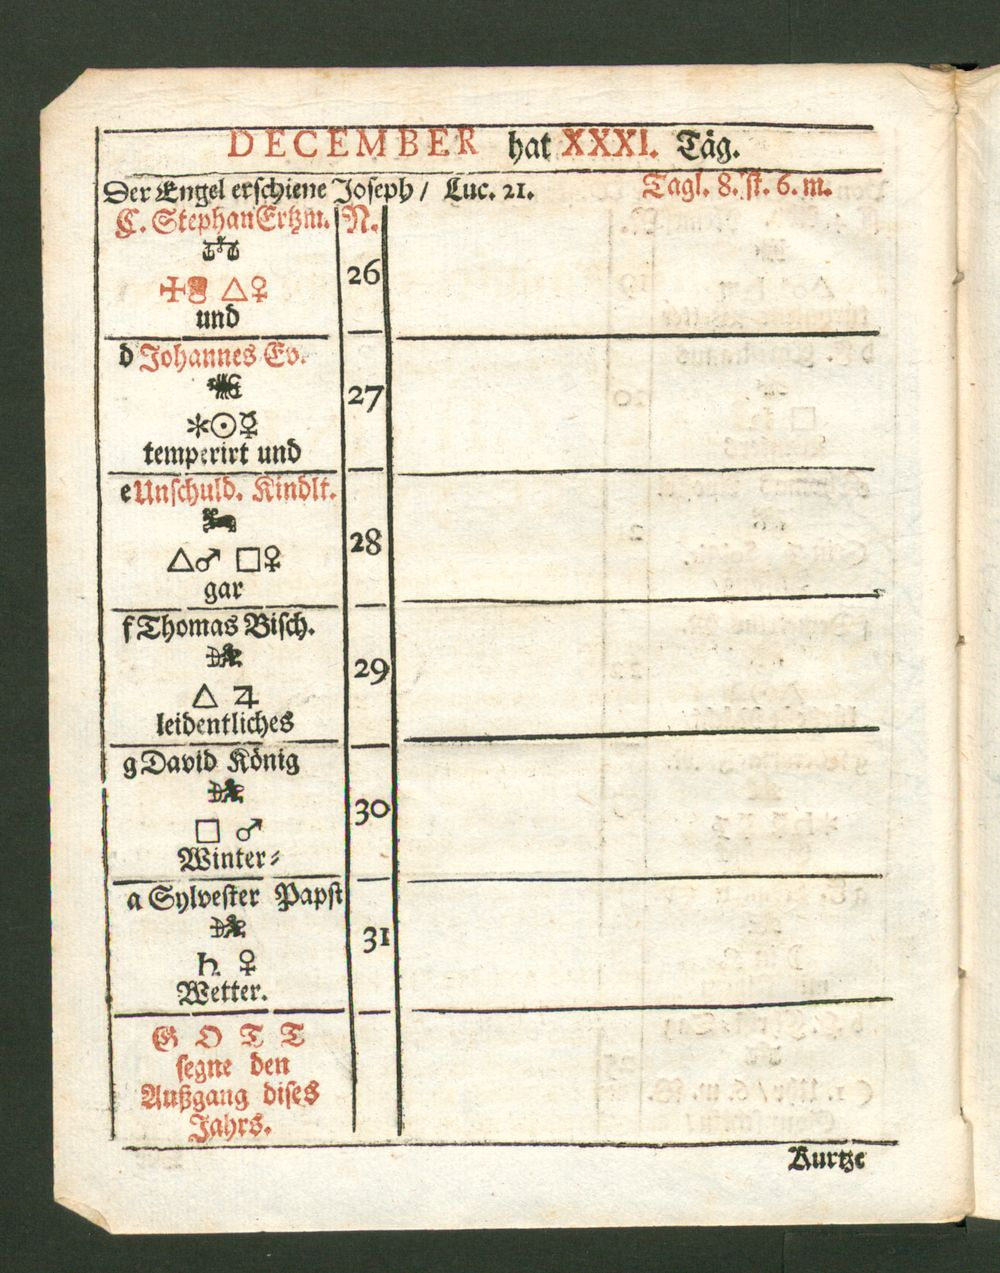 DECEMBER hat XXXI. Täg.
Der Engel erschiene Joseph / Luc. 21. Tagl. 8. st. 6. m.
C. Stephan Ertzm. N.
26
△♀
und
d Johannes Ev.
27
✻☉☿
temperirt und
e Unschuld. Kindlt.
28
△♂ □♀
gar
f Thomas Bisch.
29
△ ♃
leidentliches
g David König
30
□ ♂
Winter-
a Sylvester Papst
31
♄ ♀
Wetter.
GOTT
segne den
Außgang dises
Jahrs.
Kurtze